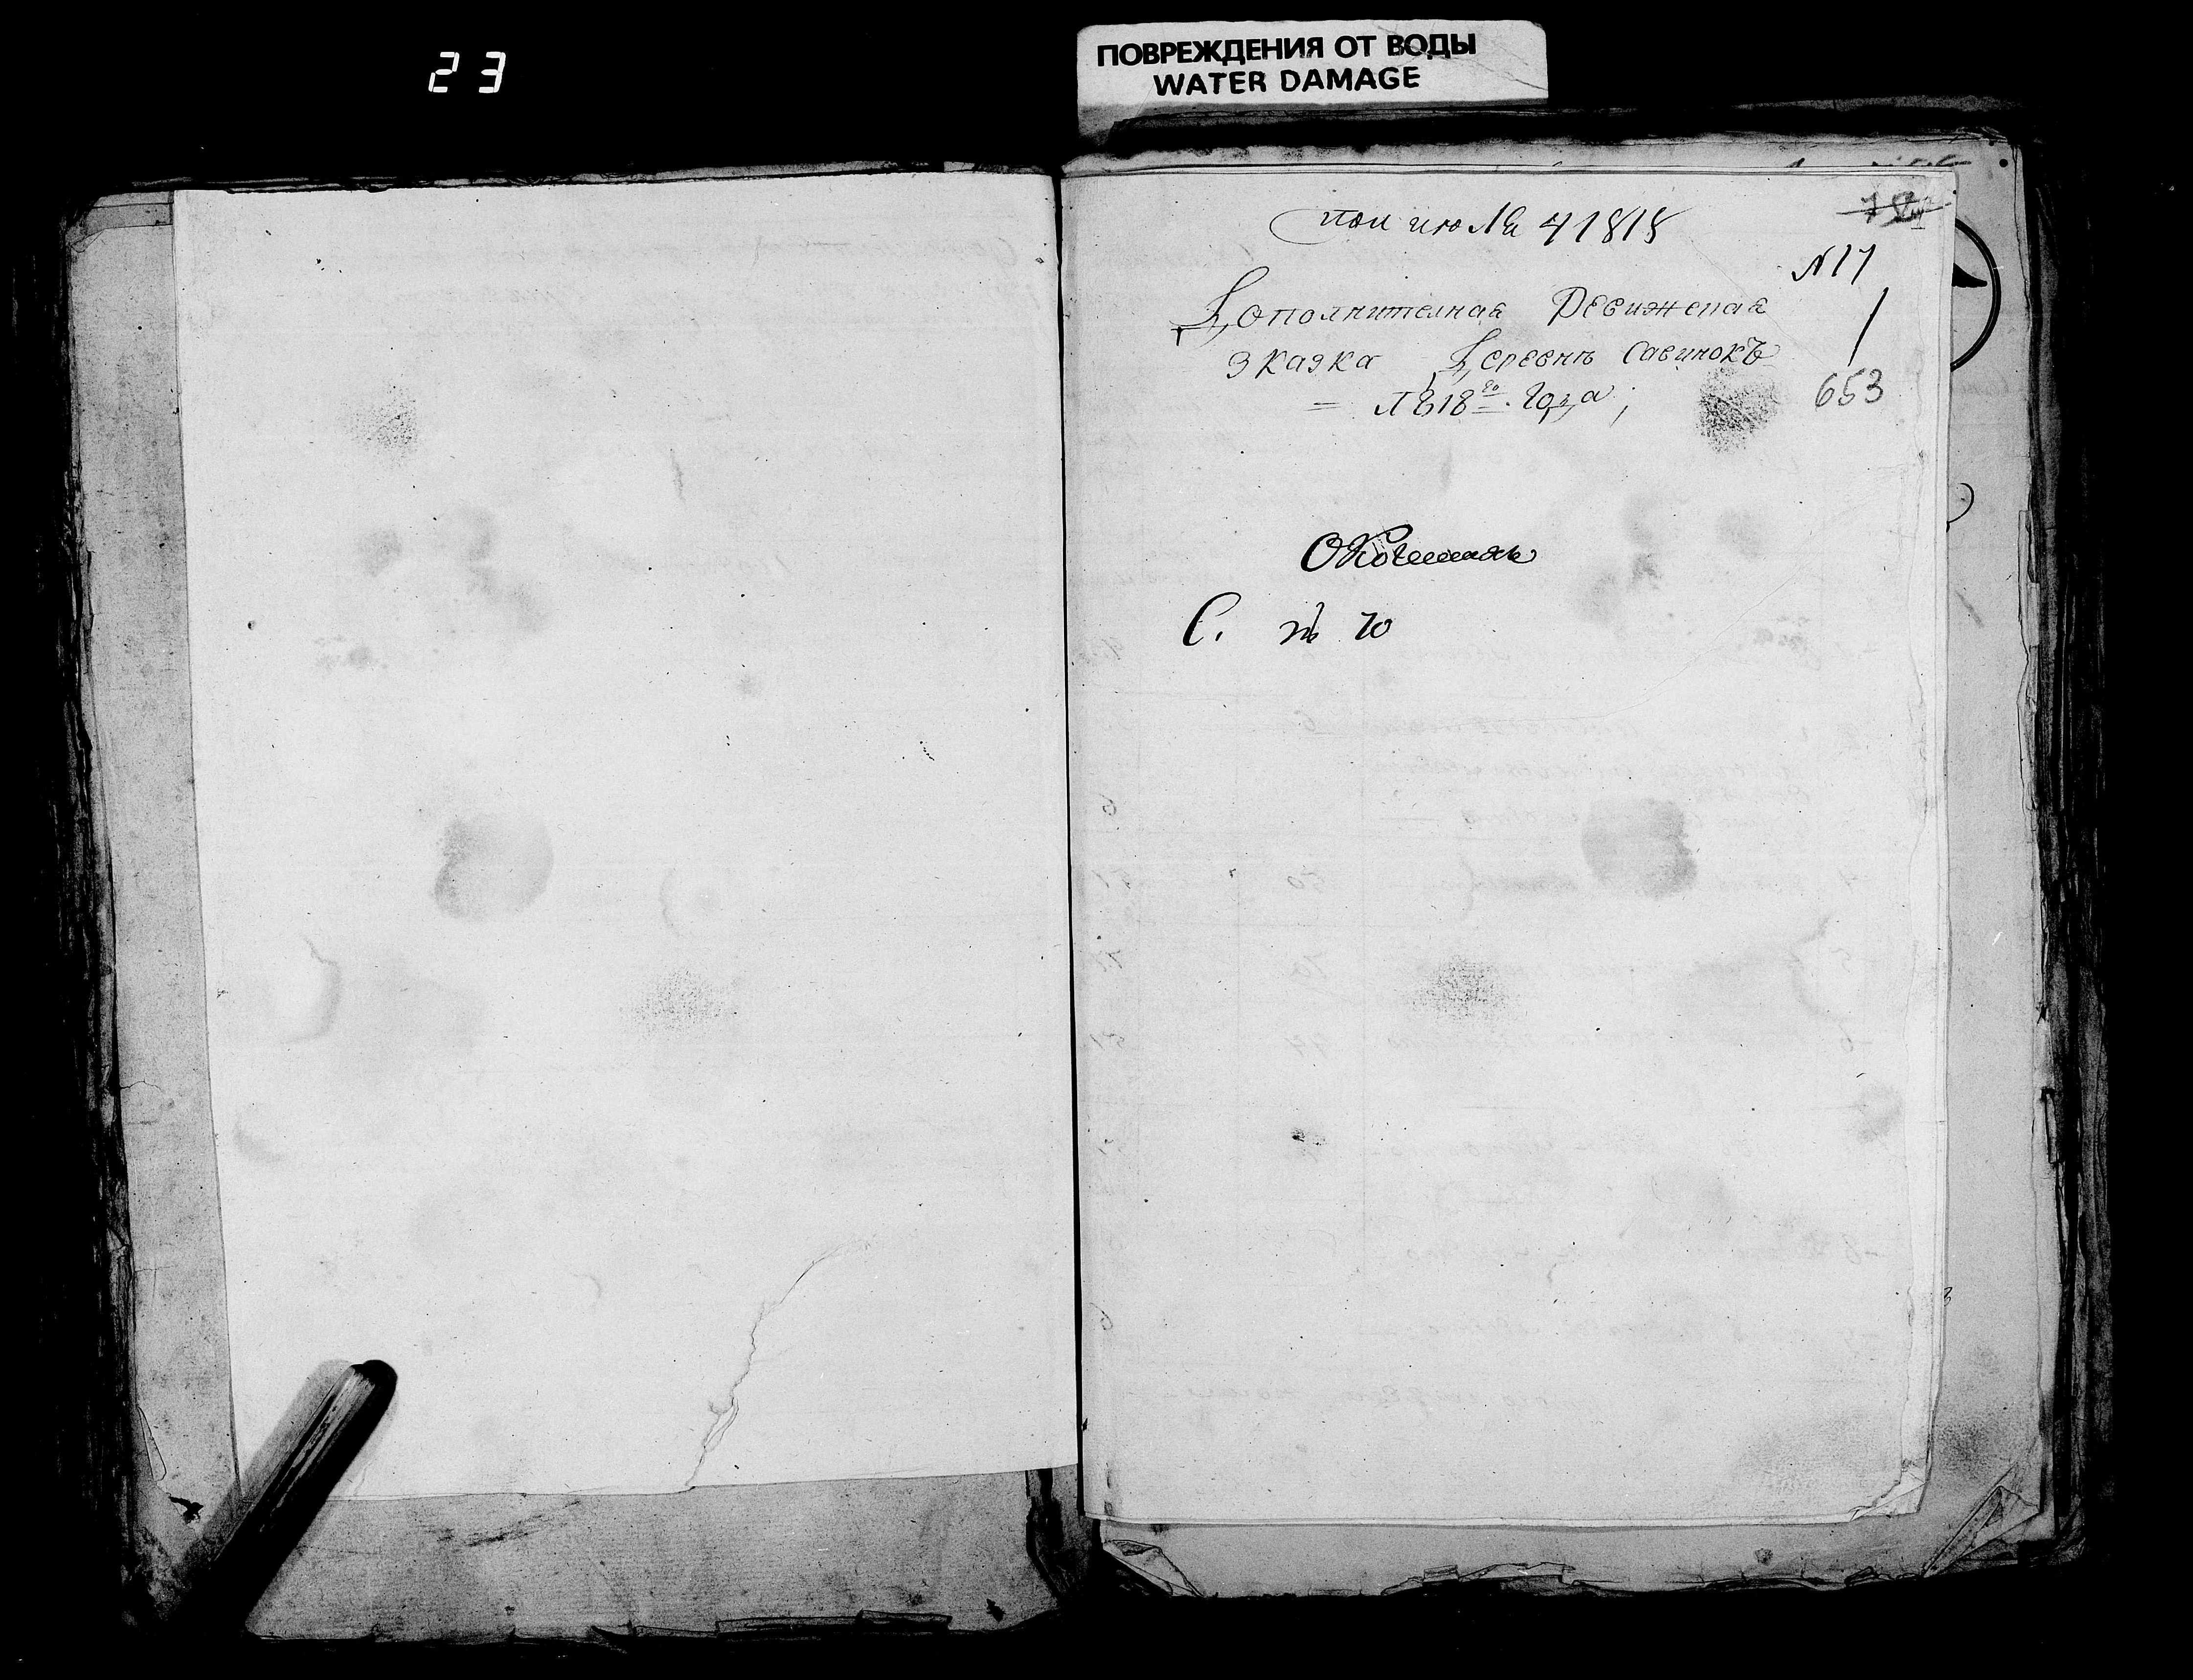 23
ПОВРЕЖДЕНИЯ ОТ ВОДЫ
WATER DAMAGE
июля 4 1818
N 17
Дополнителная Ревижская
зказка Деревнѣ Савинокъ
1818го года;
653
С. № 70